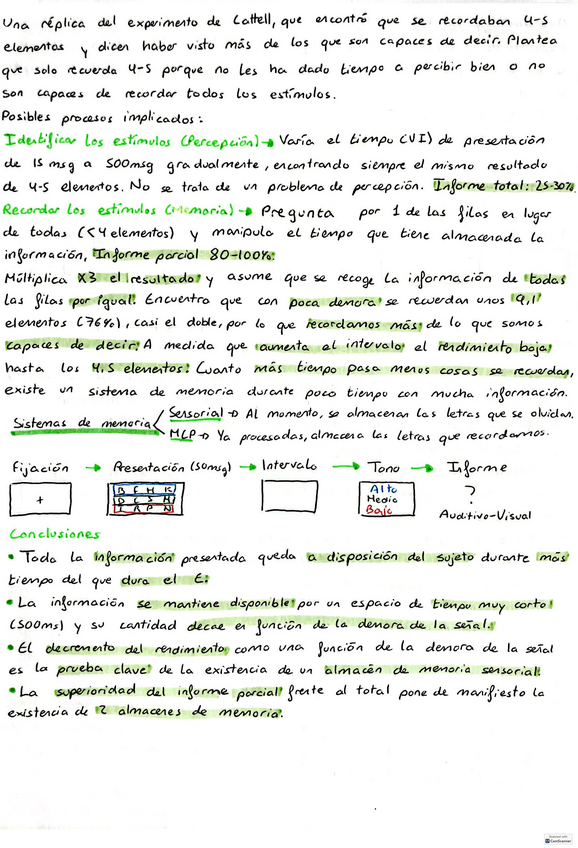 Una réplica del experimento de Cattell, que encontró que se recordaban 4-5
elementos y dicen haber visto más de los que son capaces de decir. Plantea
que solo recuerda 4-5 porque no les ha dado tiempo a percibir bien o no
son capaces de recordar todos los estímulos.
Posibles procesos implicados:
Identificar los estímulos (Percepción) → Varía el tiempo (VI) de presentación
de 15 msg a 500msg gradualmente, encontrando siempre el mismo resultado
de 4-5 elementos. No se trata de un problema de percepción. Informe total: 25-30%
Recordar los estímulos (Memoria) → Pregunta por 1 de las filas en lugar
de todas (<4 elementos) y manipula el tiempo que tiene almacenada la
información, Informe parcial 80-100%.
Múltiplica x3 el resultado y asume que se recoge la información de todas
las filas por igual. Encuentra que con poca demora se recuerdan unos 9,1
elementos (76%), casi el doble, por lo que recordamos más de lo que somos
capaces de decir. A medida que aumenta el intervalo el rendimiento baja
hasta los 4,5 elementos. Cuanto más tiempo pasa menos cosas se recuerdan,
existe un sistema de memoria durante poco tiempo con mucha información.
Sistemas de memoria
Sensorial → Al momento, se almacenan las letras que se olvidan.
MCP → Ya procesadas, almacena las letras que recordamos.
Fijación → Presentación (50msg) → Intervalo → Tono → Informe
+
B F H K
D C S M
R P N
Alto
Medio
Bajo
?
Auditivo-Visual
Conclusiones
• Toda la información presentada queda a disposición del sujeto durante más
tiempo del que dura el E.
• La información se mantiene disponible por un espacio de tiempo muy corto
(500ms) y su cantidad decae en función de la demora de la señal.
• El decremento del rendimiento como una función de la demora de la señal
es la prueba clave de la existencia de un almacén de memoria sensorial.
• La superioridad del informe parcial frente al total pone de manifiesto la
existencia de 2 almacenes de memoria.
CamScanner